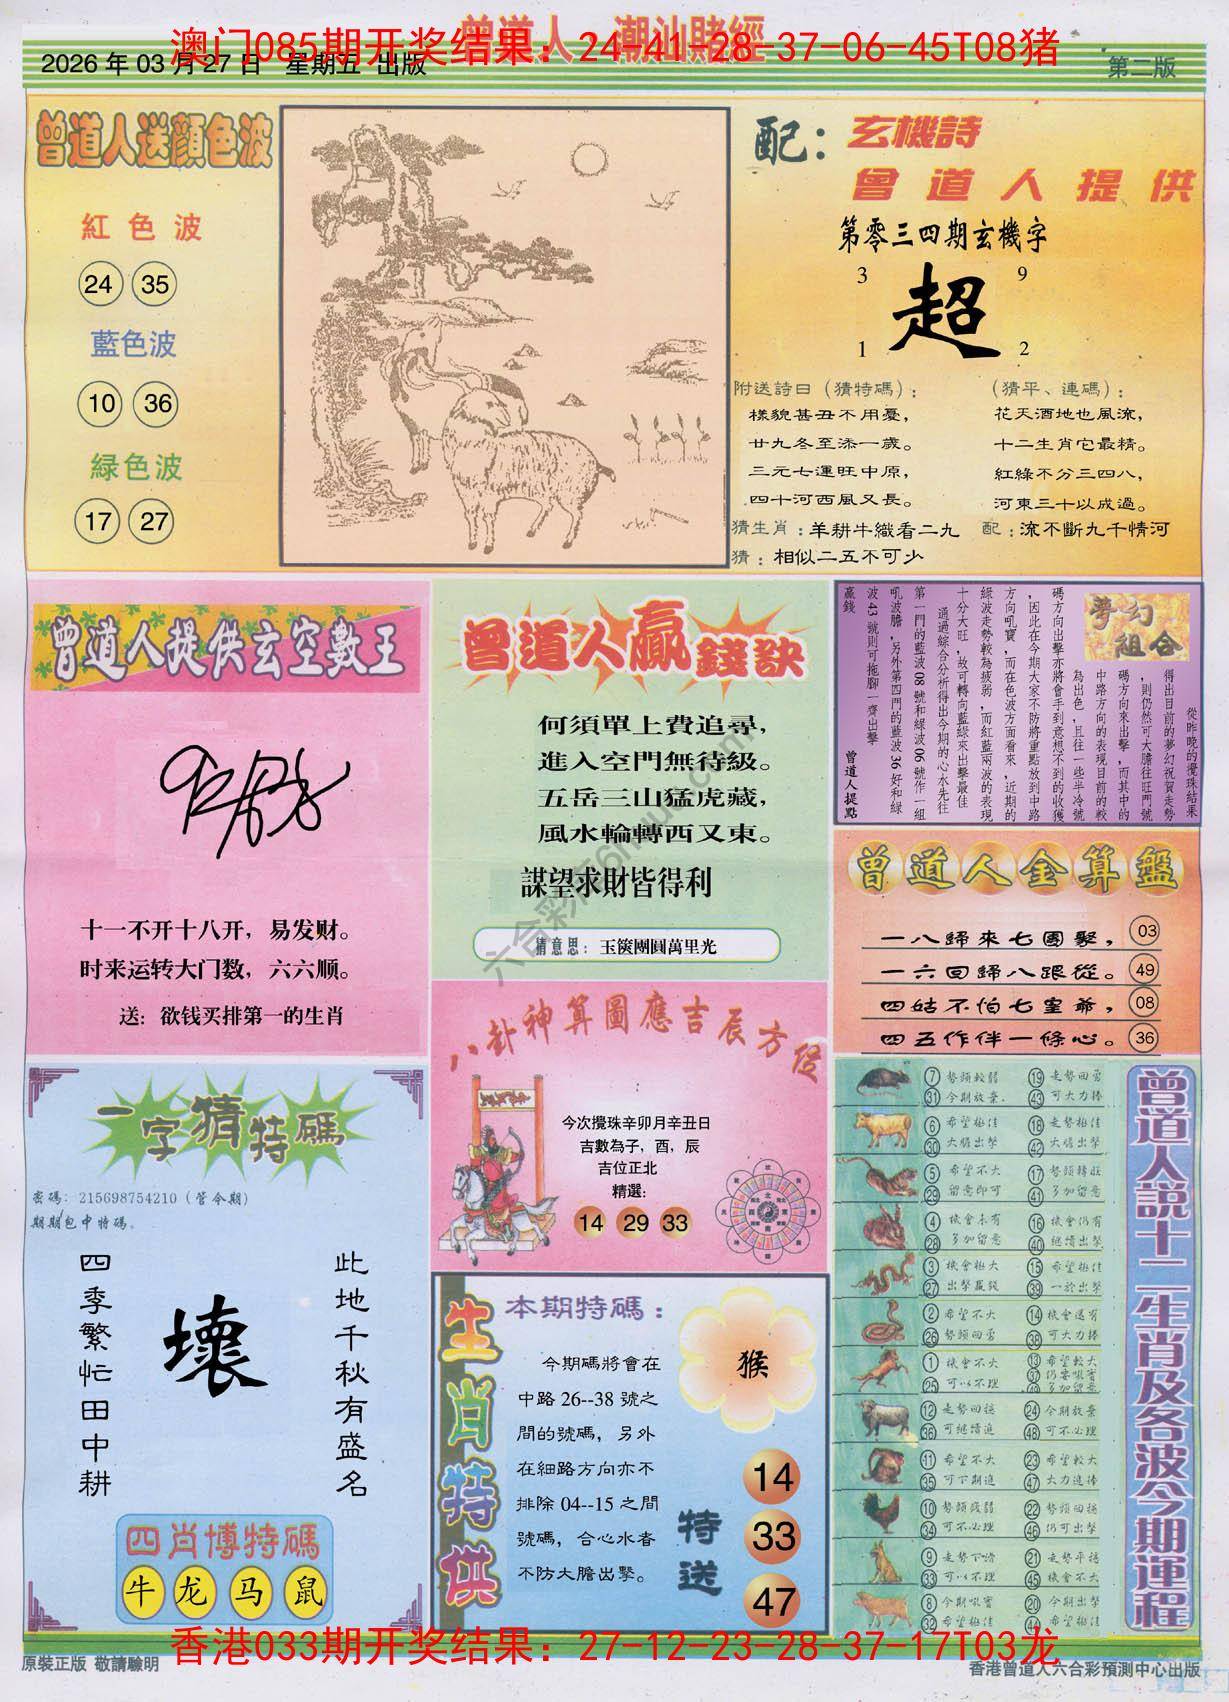 曾道人 潮汕賭經
澳门085期开奖结果：24-41-28-37-06-45T08猪
2026 年 03 月 27 日 星期五 出版
第二版
曾道人送顏色波
紅色波
24 35
藍色波
10 36
緑色波
17 27
配：玄機詩
曾道人提供
第零三四期玄機字
3 9
超
1 2
附送詩曰（猜特碼）：
樣貌甚丑不用憂，
廿九冬至添一歲。
三元七運旺中原，
四十河西風又長。
（猜平、連碼）：
花天酒地也風流，
十二生肖它最精。
紅綠不分三四八，
河東三十以成過。
猜生肖：羊耕牛織看二九
配：流不斷九千情河
猜：相似二五不可少
曾道人提供玄空數王
十一不开十八开，易发财。
时来运转大门数，六六顺。
送：欲钱买排第一的生肖
曾道人贏錢訣
何須單上費追尋，
進入空門無待級。
五岳三山猛虎藏，
風水輪轉西又東。
謀望求財皆得利
猜意思：玉篋團圓萬里光
夢幻組合
從昨晚的攪珠結果
得出目前的夢幻祝賀走勢
，則仍然可大膽往旺門號
碼方向來出擊，而其中的
中路方向的表現目前的較
為出色，且往一些半冷號
碼方向出擊亦將會手到意想不到的收獲
，因此在今期大家不防將重點放到中路
方向吼寶，而在色波方面看來，近期的
綠波走勢較為疲弱，而紅藍兩波的表現
十分大旺，故可轉向藍綠來出擊最佳
通過綜合分析得出今期的心水先往
第一門的藍波 08 號和綠波 06 號作一組
吼波膽，另外第四門的藍波 36 好和綠
波 43 號則可拖腳一齊出擊
贏錢
曾道人提點
曾道人金算盤
一八歸來七團聚， 03
一六回歸八跟從。 49
四姑不怕七皇爺， 08
四五作伴一條心。 36
八卦神算圖應吉辰方位
今次攪珠辛卯月辛丑日
吉數為子，酉，辰
吉位正北
精選：
14 29 33
一字猜特碼
密碼：215698754210（管令期）
期期包中特碼。
四季繁忙田中耕
壞
此地千秋有盛名
四肖博特碼
牛 龙 马 鼠
生肖特供
本期特碼：
今期碼將會在
中路 26--38 號之
間的號碼，另外
在細路方向亦不
排除 04--15 之間
號碼，合心水者
不防大膽出擊。
猴
特送
14
33
47
曾道人説十二生肖及各波今期運程
7 勢頭較弱 19 走勢回勇
31 今期放棄 43 可大力捧
6 希望極佳 18 走勢極佳
30 大膽出擊 42 大膽出擊
5 希望不大 17 勢頭轉旺
29 留意即可 41 多加留意
4 機會未有 16 機會仍有
28 多加留意 40 繼續出擊
3 機會極大 15 希望極佳
27 出擊贏錢 39 一於出擊
2 希望不大 14 機會還有
26 勢頭回勇 38 可大力捧
1 機會不大 13 希望較大
25 可以不理 37 仍要吼實
49 多加留意
12 走勢回穩 24 今期放棄
36 可繼續追 48 可不必理
11 希望不大 23 希望較大
35 可下期追 47 大力追捧
10 勢頭殘弱 22 勢頭回穩
34 可不必理 46 仍可出擊
9 走勢下滑 21 走勢平穩
33 可以不理 45 機會不大
8 今期吼實 20 今期出擊
32 希望極佳 44 希望極佳
香港033期开奖结果：27-12-23-28-37-17T03龙
原裝正版 敬請驗明
香港曾道人六合彩預測中心出版